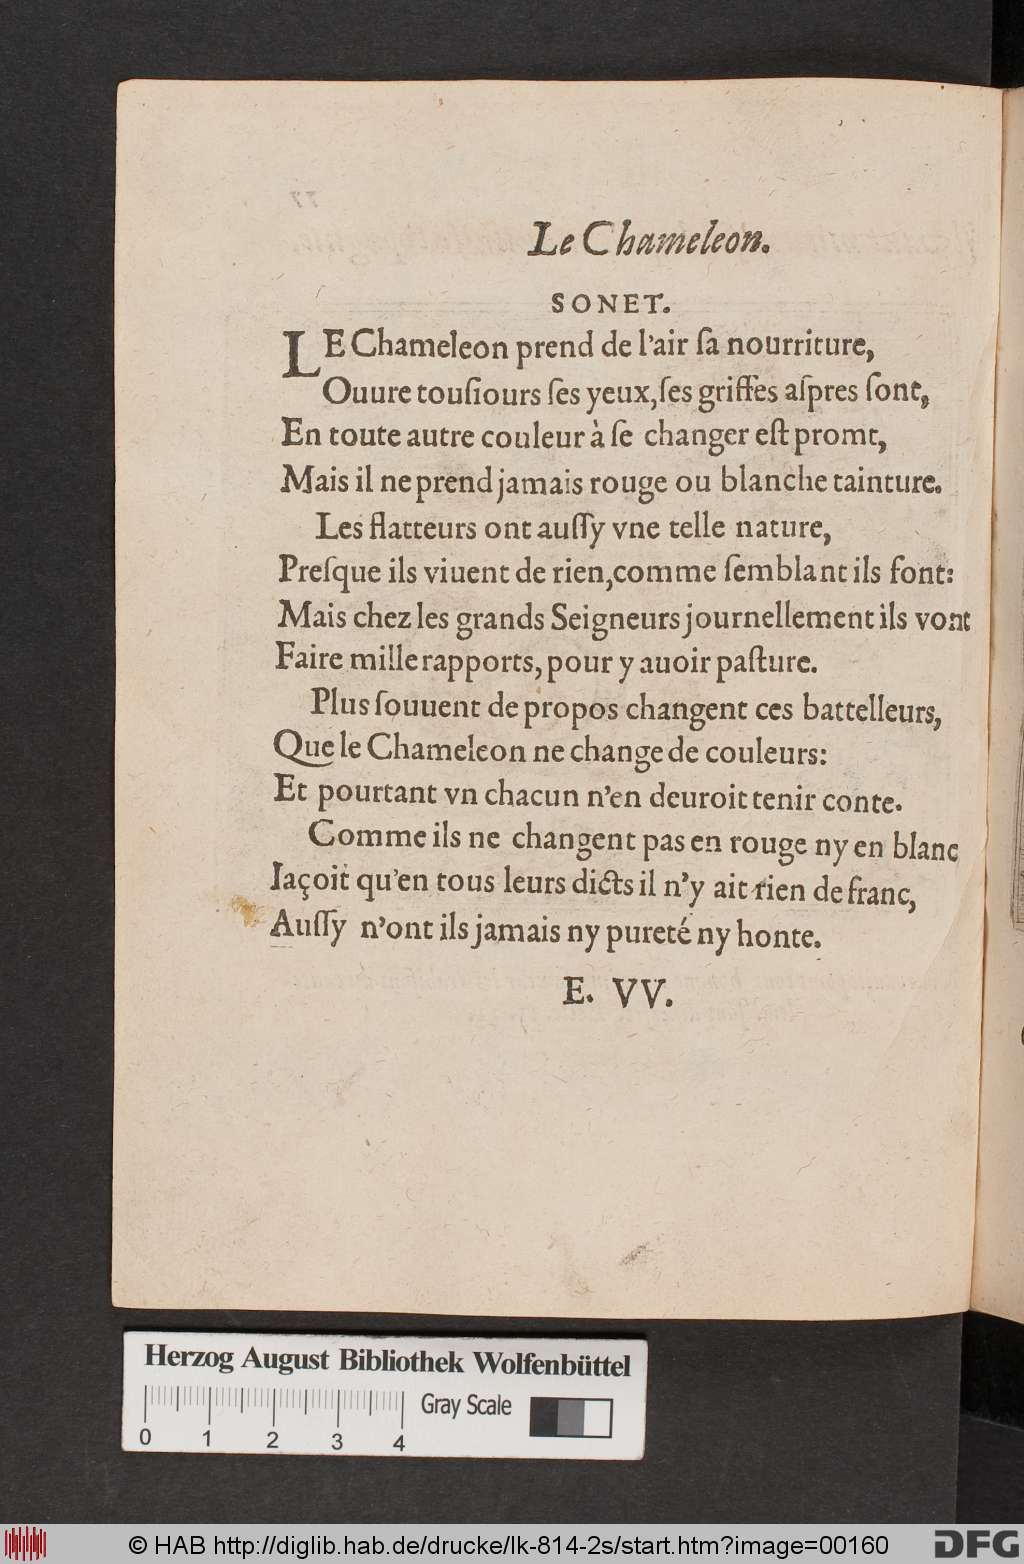 Le Chameleon.
SONET.
LE Chameleon prend de l'air ſa nourriture,
Ouure touſiours ſes yeux, ſes griffes aſpres ſont,
En toute autre couleur à ſe changer eſt promt,
Mais il ne prend jamais rouge ou blanche tainture.
Les flatteurs ont auſſy vne telle nature,
Preſque ils viuent de rien, comme ſemblant ils font:
Mais chez les grands Seigneurs journellement ils vont
Faire mille rapports, pour y auoir paſture.
Plus ſouuent de propos changent ces battelleurs,
Que le Chameleon ne change de couleurs:
Et pourtant vn chacun n'en deuroit tenir conte.
Comme ils ne changent pas en rouge ny en blanc
Iaçoit qu'en tous leurs dicts il n'y ait rien de franc,
Auſſy n'ont ils jamais ny pureté ny honte.
E. VV.
Herzog August Bibliothek Wolfenbüttel
Gray Scale
0 1 2 3 4
© HAB http://diglib.hab.de/drucke/lk-814-2s/start.htm?image=00160
DFG